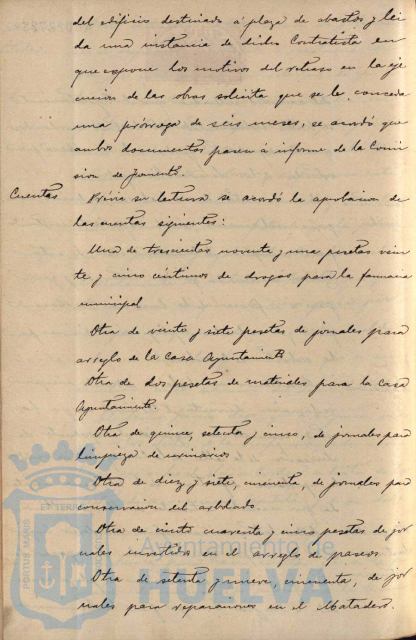 del edificio destinado á plaza de abastos y lei
da una instancia de dicho Contratista en
que expone los motivos del retraso en la eje
cucion de las obras solicita que se le conceda
una prórroga de seis meses, se acordó que
ambos documentos pasen á informe de la Comi
sion de fomento.
Cuentas Prévia su lectura se acordó la aprobacion de
las cuentas siguientes:
Una de trescientas noventa y una pesetas vein
te y cinco céntimos de drogas para la farmacia
municipal
Otra de veinte y siete pesetas de jornales para
arreglo de la casa Ayuntamiento
Otra de dos pesetas de materiales para la Casa
Ayuntamiento.
Otra de quince, setenta y cinco, de jornales para
limpieza de urinarios
Otra de diez y siete, cincuenta, de jornales para
conservacion del arbolado.
Otra de ciento cuarenta y cinco pesetas de jor
nales invertidos en el arreglo de paseos
Otra de setenta y nueve, cincuenta, de jor
nales para reparaciones en el Matadero.
PORTUS MARIS ET TERRAE
Ayuntamiento de
HUELVA